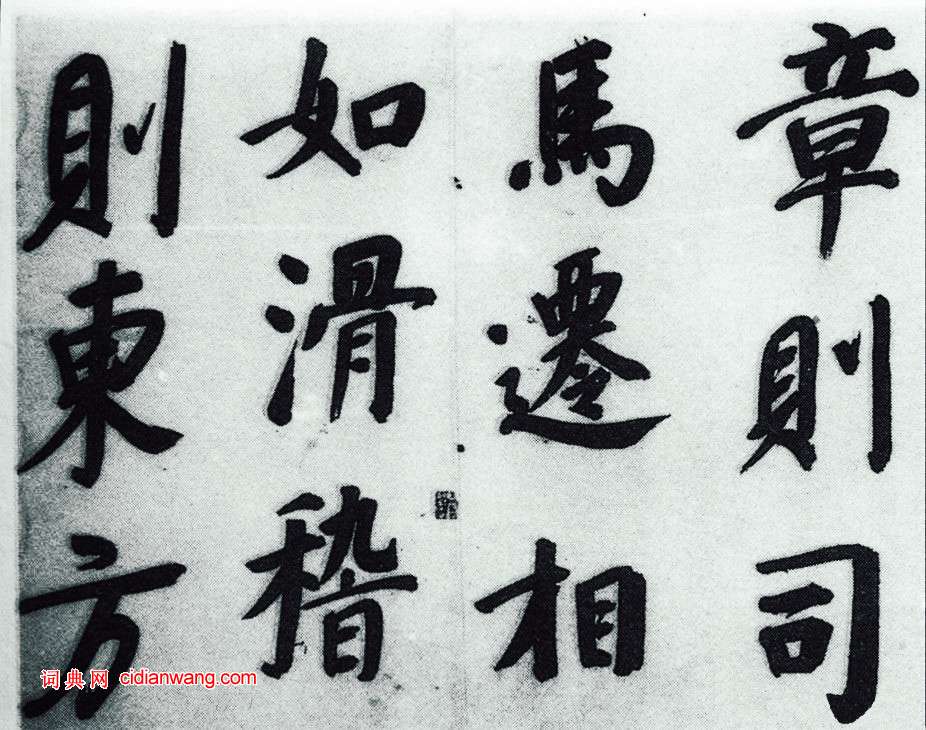 章則司
馬遷相
如滑稽
則東方
词典网 cidianwang.com